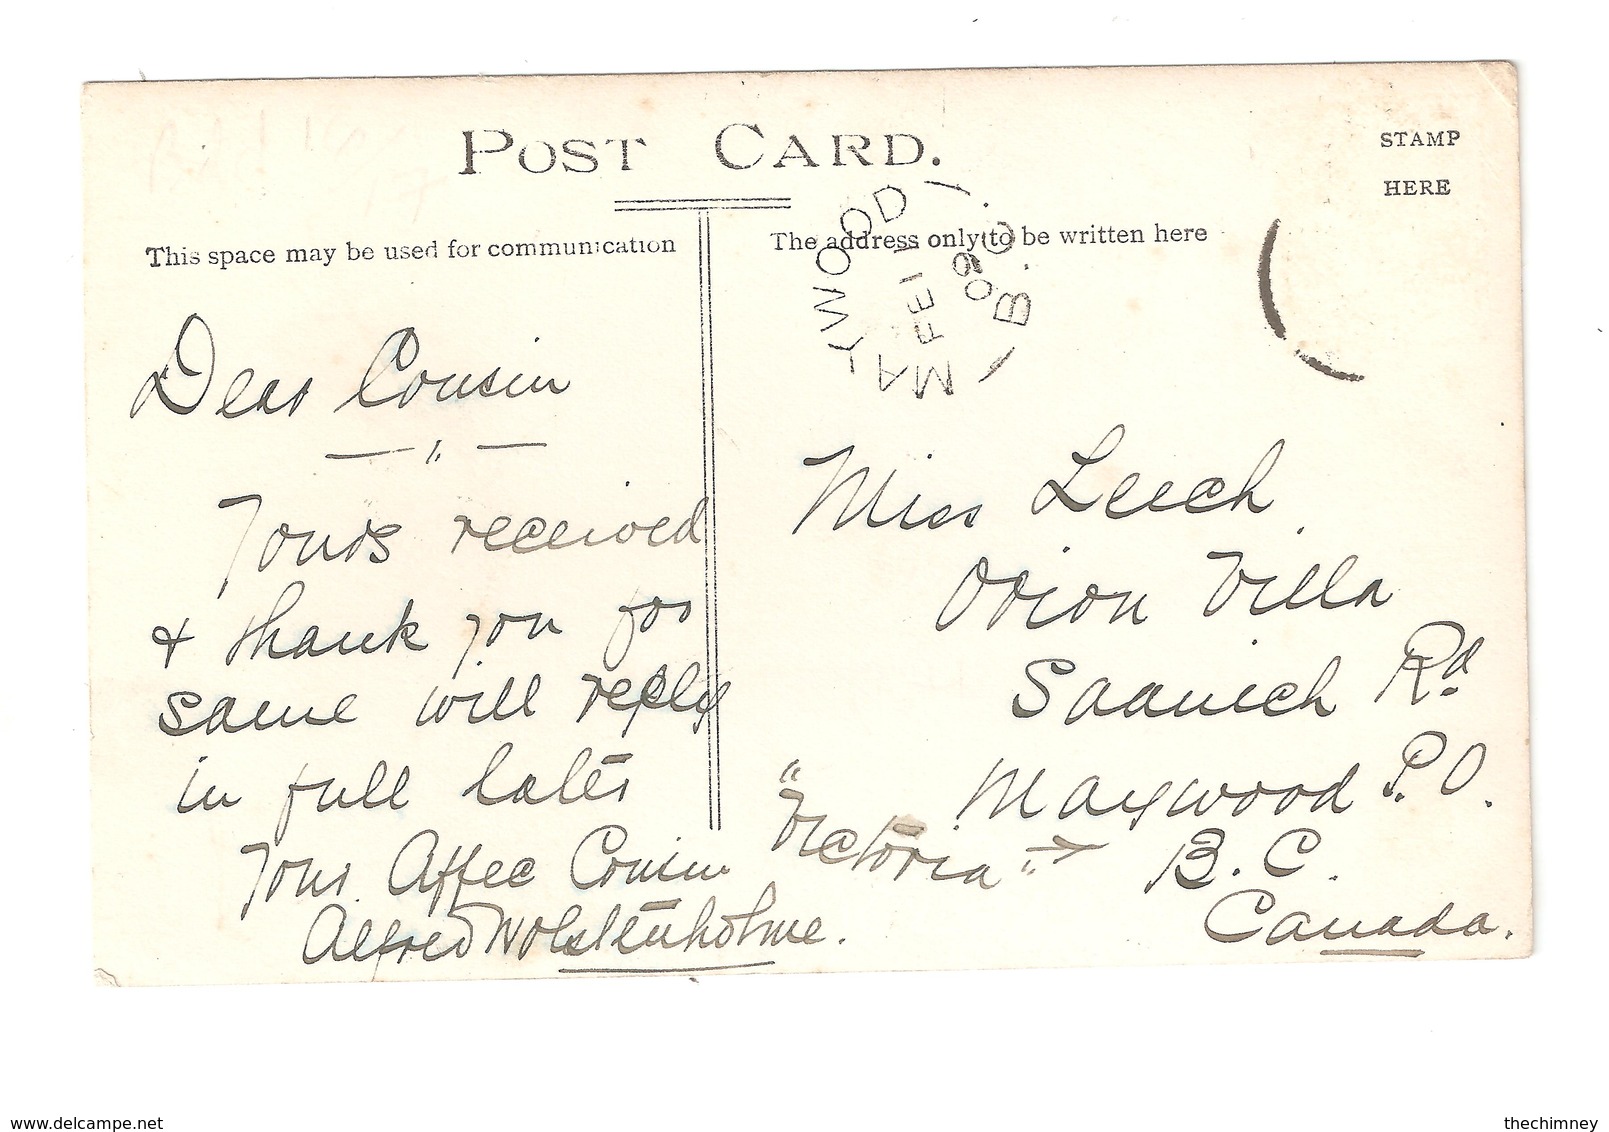 POST CARD.
STAMP
HERE
This space may be used for communication
The address only to be written here
MAYWOOD B.C.
FE 1
09
Dear Cousin
Yours received
& thank you for
same will reply
in full later
Your Affec Cousin
Alfred Wolstenholme.
Miss Leech
Orion Villa
Saanich Rd
Maywood P.O.
"Victoria" B.C.
Canada.
www.delcampe.net
thechimney